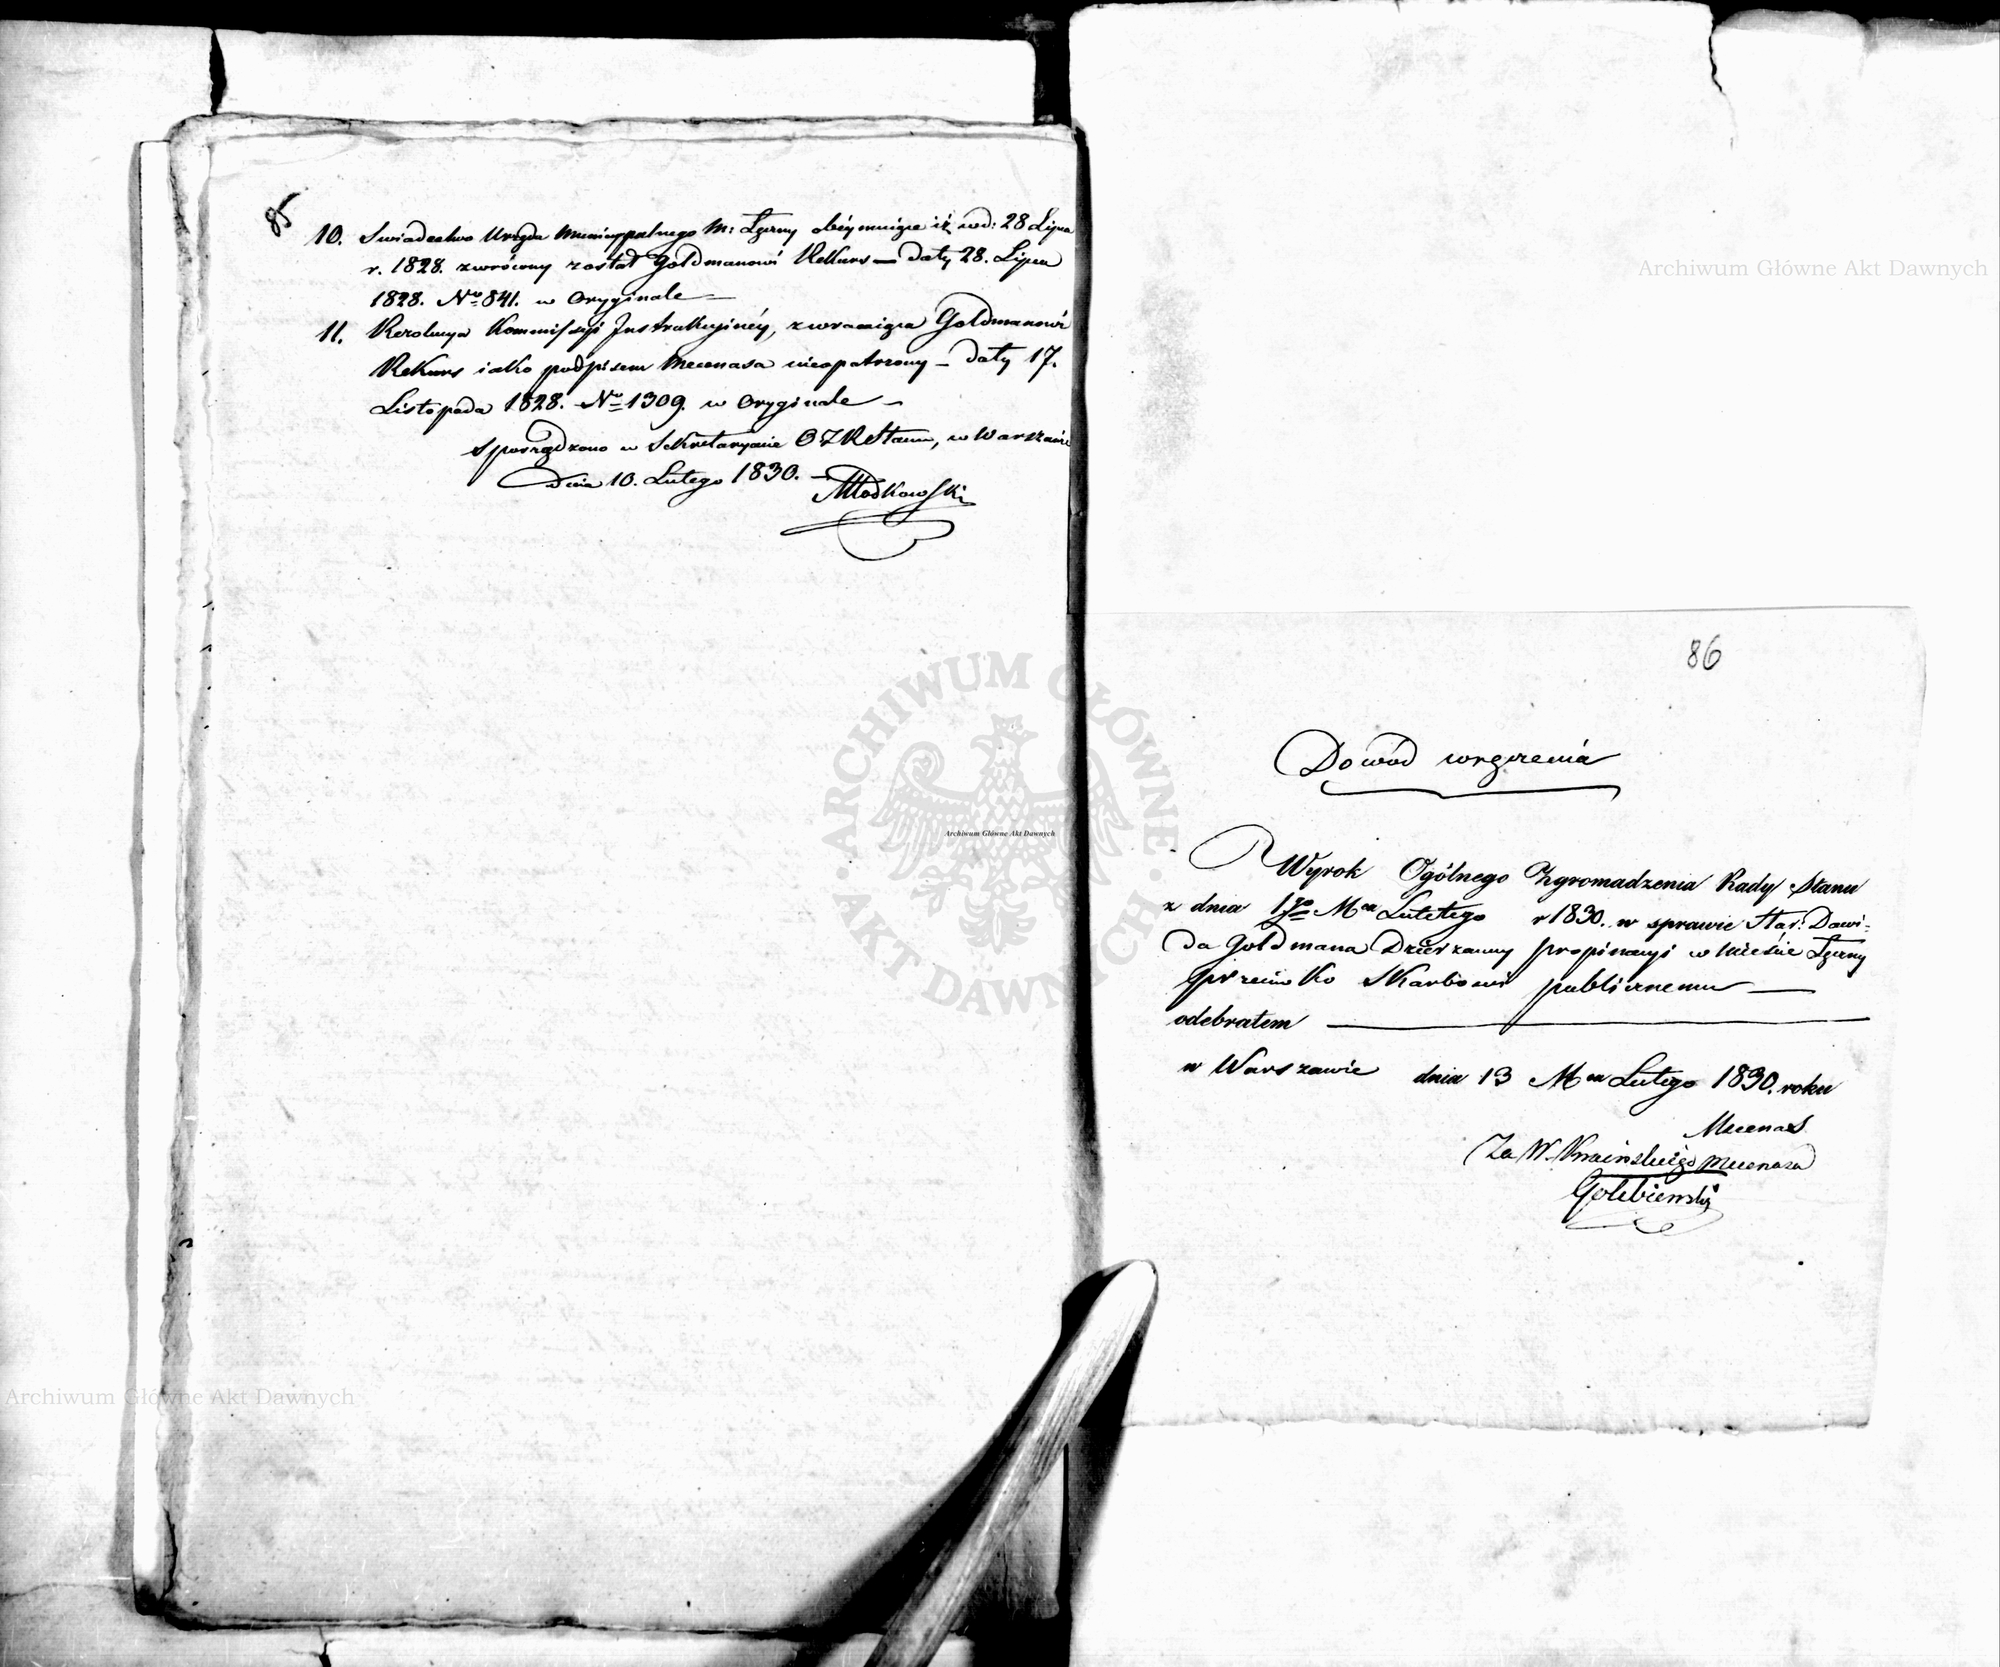 86
10. Swiadectwo Urzędu Municypalnego M: Łęczny obéymuiące iż wd: 28 Lipca
r. 1828. zwrócony został Goldmanowi Rekurs — daty 28. Lipca
1828. No 841. w Oryginale —
11. Rezolucya Kommissyi Instrukcyinéy, zwracaiąca Goldmanowi
Rekurs iako podpisem Mecenasa nieopatrzony — daty 17.
Listopada 1828. No 1309. w Oryginale —
Sporządzono w Sekretaryacie O Z R Stanu, w Warszawie
Dnia 10. Lutego 1830. —
Młodkowski
86
Dowód wręczenia
Wyrok Ogólnego Zgromadzenia Rady Stanu
z dnia 1go Mca Lutetego r 1830. w sprawie Star: Dawi-
da Goldmana Dzierzawcy propinacyi w Mieście Łęczny
przeciwko Skarbowi publicznemu —
odebrałem —
w Warszawie dnia 13 Mca Lutego 1830. roku
Mecenas
Za W. Mecenasa
Golebiewski
Archiwum Główne Akt Dawnych
Archiwum Główne Akt Dawnych
Archiwum Główne Akt Dawnych
ARCHIWUM GŁÓWNE AKT DAWNYCH